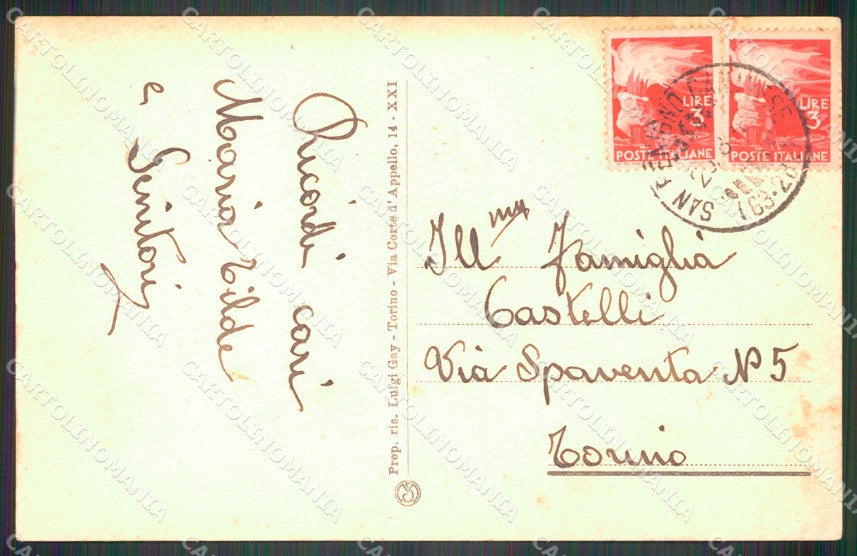 Ricordi cari
Maria Tilde
e Genitori
Prop. ris. Luigi Gay - Torino - Via Corte d'Appello, 14 - XXI
LIRE
3
POSTE ITALIANE
LIRE
3
POSTE ITALIANE
SAN CANAVESE
Ill.ma Famiglia
Castelli
Via Spaventa N 5
Torino
CARTOLINOMANIA